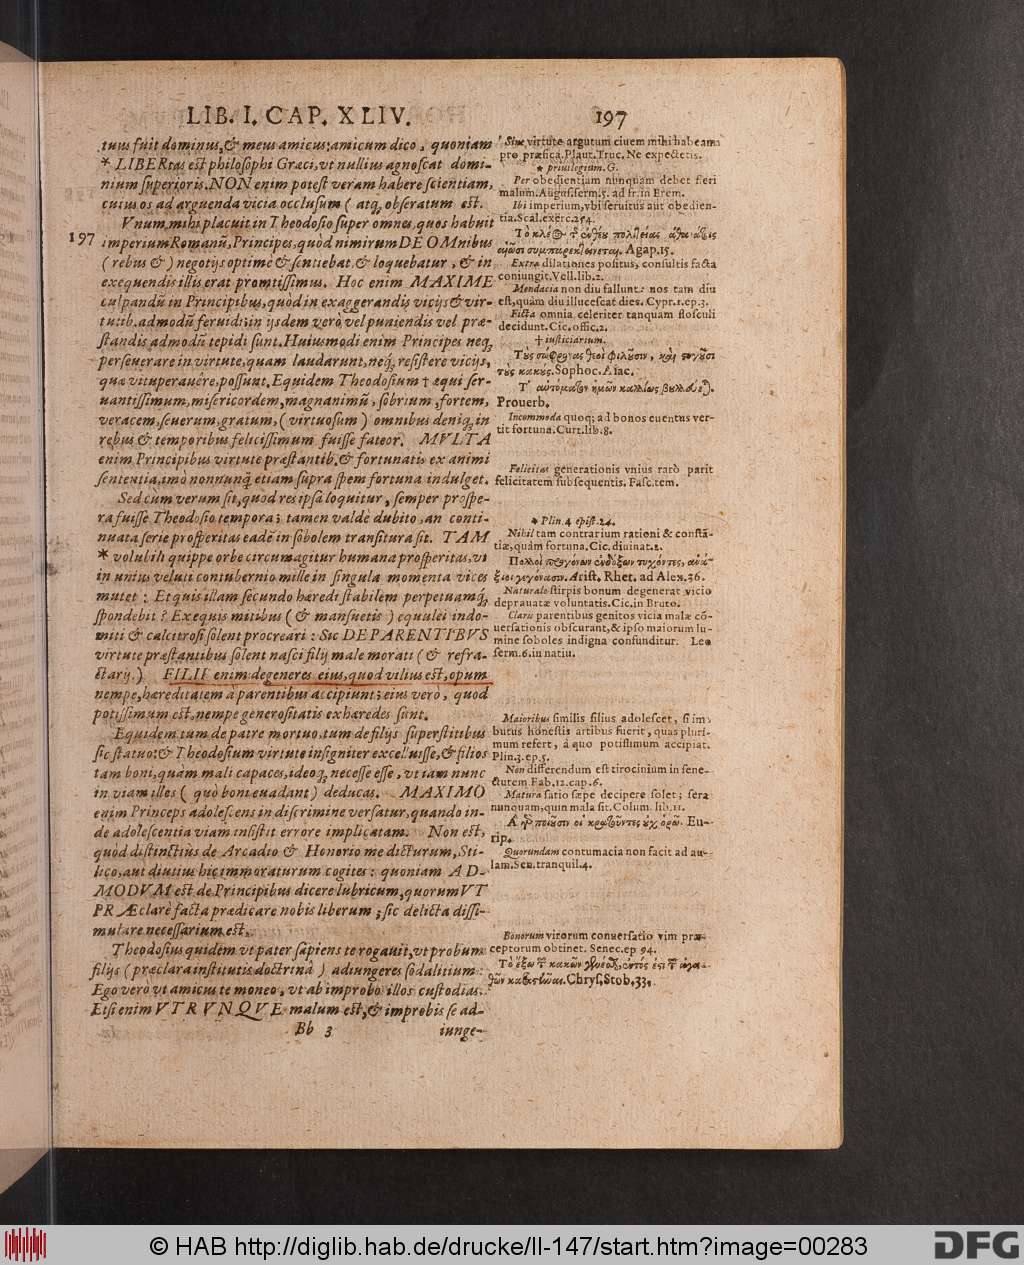 LIB. I. CAP. XLIV. 197
tuus fuit dominus, & meus amicus: amicum dico, quoniam
* LIBERtas est philosophi Græci, vt nullius agnoscat domi-
nium superioris. NON enim potest veram habere scientiam,
cuius os ad arguenda vicia occlusum ( atq, obseratum est.
Vnum mihi placuit in Theodosio super omnes, quos habuit
197 imperium Romanũ, Principes, quòd nimirum DE OMnibus
( rebus & ) negotijs optimè & sentiebat, & loquebatur, & in
exequendis illis erat promtissimus. Hoc enim MAXIME
culpandũ in Principibus, quòd in exaggerandis vicijs & vir-
tutib. admodũ feruidi: in ijsdem verò vel puniendis vel præ-
standis admodũ tepidi sunt. Huiusmodi enim Principes neq,
perseuerare in virtute, quam laudarunt, neq, resistere vicijs,
quæ vituperauêre, possunt. Equidem Theodosium † æqui ser-
uantissimum, misericordem, magnanimũ, sobrium, fortem,
veracem, seuerum, gratum, ( virtuosum ) omnibus deniq, in
rebus & temporibus felicissimum fuisse fateor. MVLTA
enim Principibus virtute præstantib. & fortunatis ex animi
sententia, imò nonnunq̃ etiam supra spem fortuna indulget.
Sed cum verum sit, quod res ipsa loquitur, semper prospe-
ra fuisse Theodosio tempora; tamen valdè dubito, an conti-
nuata serie prosperitas eadẽ in sobolem transitura sit. TAM
* volubili quippe orbe circumagitur humana prosperitas, vt
in unius veluti contubernio mille in singula momenta vices
mutet: Et quis illam secundo hæredi stabilem perpetuamq́,
spondebit? Ex equis mitibus ( & mansuetis ) equulei indo-
miti & calcitrosi solent procreari: Sic DE PARENTIBVS
virtute præstantibus solent nasci filij male morati ( & refra-
ctarij.) FILII enim degeneres eius, quod vilius est, opum
nempe, hæreditatem à parentibus accipiunt; eius verò, quod
potissimum est, nempe generositatis exhæredes sunt.
Equidem tum de patre mortuo, tum de filijs superstitibus
sic statuo: & Theodosium virtute insigniter excelluisse, & filios
tam boni, quàm mali capaces, ideoq, necesse esse, vt iam nunc
in viam illes ( quò boni euadant ) deducas. MAXIMO
enim Princeps adolescens in discrimine versatur, quando in-
de adolescentia viam insistit errore implicatam. Non est,
quòd distinctiùs de Arcadio & Honorio me dicturum, Sti-
lico, aut diutius hic immoraturum cogites: quoniam AD-
MODVM est de Principibus dicere lubricum, quorum VT
PRÆclarè facta prædicare nobis liberum; sic delicta dissi-
mulare necessarium est.
Theodosius quidem vt pater sapiens te rogauit, vt probum
filijs ( præclara institutis doctrina ) adiungeres sodalitium:
Ego verò vt amicus te moneo, vt ab improbo illos custodias.
Etsi enim VTRVNQVE malum est, & improbis se ad-
Bb 3 iunge-
Sine virtute argutum ciuem mihi habeam
pro præfica. Plaut. Truc. Ne expectetis.
* priuilegium. G.
Per obedientiam nunquam debet fieri
malum. Augus. serm. 5. ad fr. in Erem.
Ibi imperium, vbi seruitus aut obedien-
tia. Scal. exerc. 254.
Agap. 15.
Extra dilationes positus, consultis facta
coniungit. Vell. lib. 2.
Mendacia non diu fallunt: nos tam diu
est, quàm diu illucescat dies. Cypr. 1. ep. 3.
Ficta omnia celeriter tanquam flosculi
decidunt. Cic. offic. 2.
† iusticiarium.
Τοὺς σώφρονας θεοὶ φιλοῦσιν, καὶ στυγοῦσι
τοὺς κακούς. Sophoc. Aiac.
Prouerb.
Incommoda quoq; ad bonos euentus ver-
tit fortuna. Curt. lib. 8.
Felicitas generationis vnius rarò parit
felicitatem subsequentis. Fasc. tem.
* Plin. 4 epist. 24.
Nihil tam contrarium rationi & constã-
tiæ, quàm fortuna. Cic. diuinat. 2.
Arist. Rhet. ad Alex. 36.
Naturale stirpis bonum degenerat vicio
deprauatæ voluntatis. Cic. in Bruto.
Claris parentibus genitos vicia malæ cõ-
uersationis obscurant, & ipso maiorum lu-
mine soboles indigna confunditur. Leo
serm. 6. in natiu.
Maioribus similis filius adolescet, si im-
butus honestis artibus fuerit, quas pluri-
mum refert, à quo potissimum accipiat.
Plin. 3. ep. 5.
Non differendum est tirocinium in sene-
ctutem Fab. 12. cap. 6.
Matura satio sæpe decipere solet; sera
nunquam, quin mala sit. Colum. lib. 11.
Eu-
rip.
Quorundam contumacia non facit ad au-
lam. Sen. tranquil. 4.
Bonorum virorum conuersatio vim præ-
ceptorum obtinet. Senec. ep 94.
Chrys. Stob. 33.
© HAB http://diglib.hab.de/drucke/li-147/start.htm?image=00283
DFG